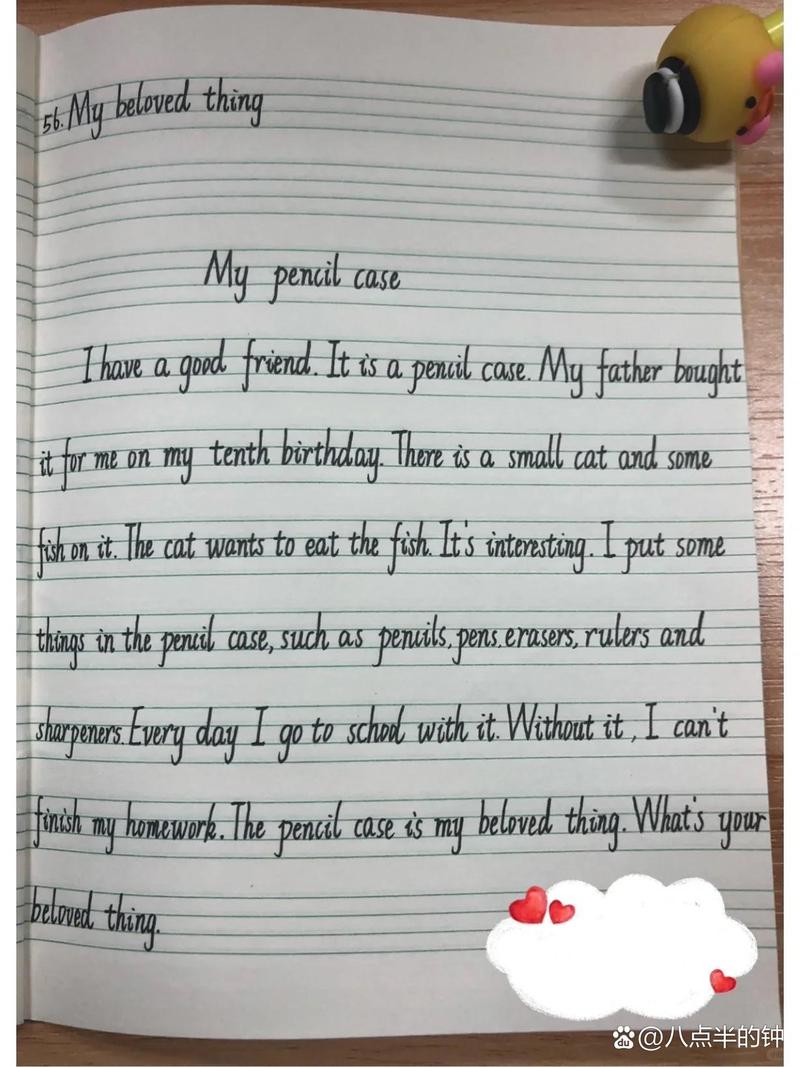 56. My beloved thing
My pencil case
I have a good friend. It is a pencil case. My father bought
it for me on my tenth birthday. There is a small cat and some
fish on it. The cat wants to eat the fish. It's interesting. I put some
things in the pencil case, such as pencils, pens, erasers, rulers and
sharpeners. Every day I go to school with it. Without it, I can't
finish my homework. The pencil case is my beloved thing. What's your
beloved thing.
Bai du @八点半的钟